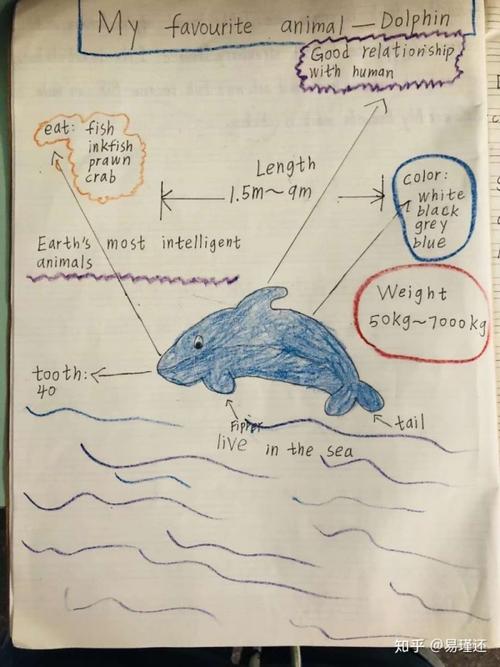 My favourite animal — Dolphin
Good relationship
with human
eat: fish
inkfish
prawn
crab
Length
1.5m~9m
color:
white
black
grey
blue
Earth's most intelligent
animals
Weight
50kg~7000kg
tooth:
40
tail
live in the sea
知乎 @易瑾还